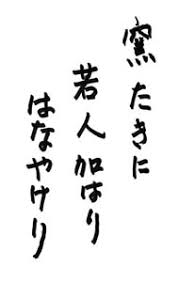 窯たきに
若人加はり
はなやけり